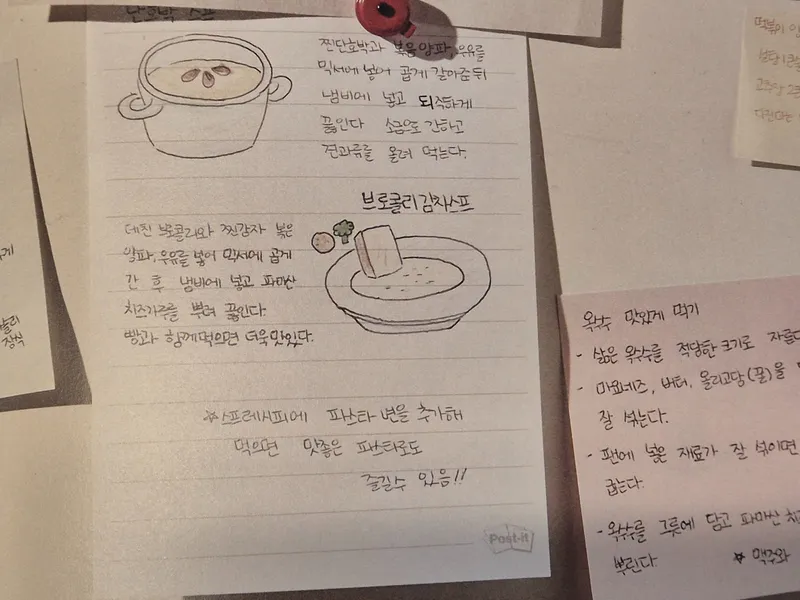 단호박 스프
찐단호박과 볶은양파, 우유를
믹서에 넣어 곱게 갈아준뒤
냄비에 넣고 되직하게
끓인다 소금으로 간하고
견과류를 올려 먹는다.
브로콜리감자스프
데친 브로콜리와 찐감자 볶은
양파, 우유를 넣어 믹서에 곱게
간 후 냄비에 넣고 파마산
치즈가루를 뿌려 끓인다.
빵과 함께먹으면 더욱맛있다.
☆스프레시피에 파스타 면을 추가해
먹으면 맛좋은 파스타로도
즐길수 있음!!
Post-it
옥수수 맛있게 먹기
- 삶은 옥수수를 적당한 크기로
- 마요네즈, 버터, 올리고당(꿀)을
잘 섞는다.
- 팬에 넣은 재료가 잘 섞이면
굽는다.
- 옥수수를 그릇에 담고 파마산
뿌린다. ☆ 맥주와
떡볶이
장식